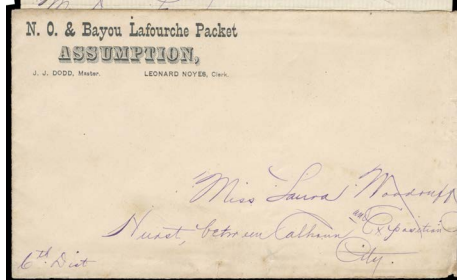 N. O. & Bayou Lafourche Packet
ASSUMPTION,
J. J. DODD, Master. LEONARD NOYES, Clerk.
Miss Laura Woodruff
Hurst, between Calhoun and Exposition
City.
6th Dist